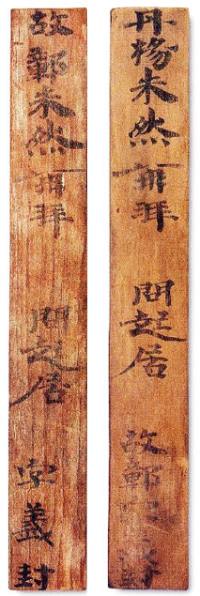 丹楊朱然再拜 問起居 故鄣字義封
故鄣朱然再拜 問起居 字義封